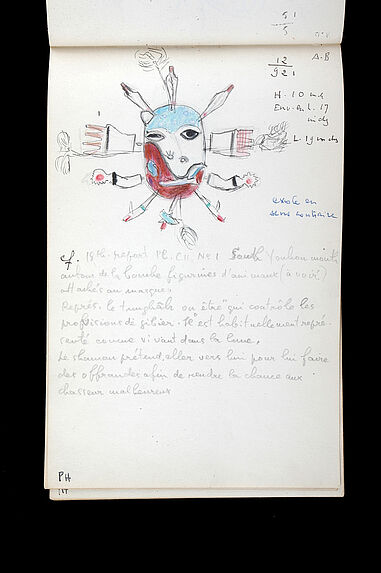 51
5
A-B
12
921
H. 10 ins
Env. en L. 17
inch
L. 19 inch
existe en
sens contraire
cf. 18th. report Pl. CII. No 1 South Youkon
autour de la bouche figurines d'animaux (à voir)
attachés au masque.
Représ. le tunghâk ou être "qui contrôle les
provisions de gibier. Il est habituellement représ-
senté comme vivant dans la lune.
Le shaman prétend aller vers lui pour lui faire
des offrandes afin de rendre la chance aux
chasseurs malheureux
PH